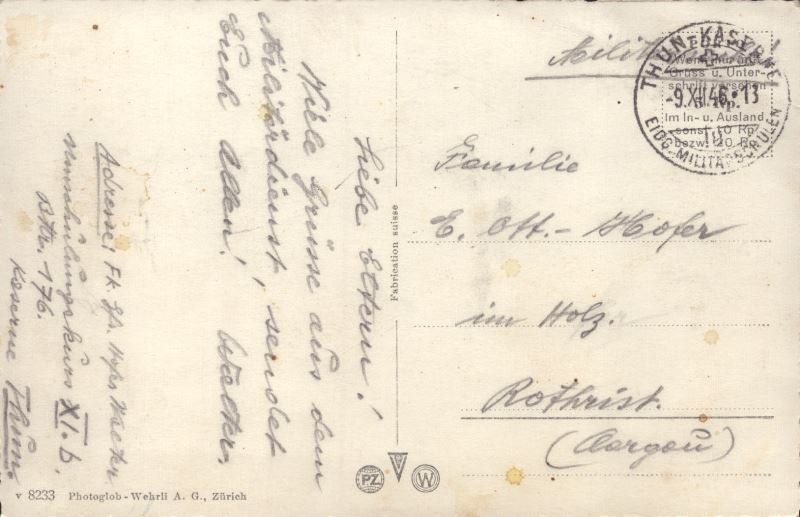 Liebe Eltern!
Viele Grüsse aus dem
Militärdienst, sendet
Euch Allen! Walter.
Adresse! Fk. Hofer Walter
Umschulungskurs XI. b.
Bttr. 176.
Kaserne Thun.
Fabrication suisse
THUN-KASERNE
-9.XII.46.-13
EIDG. MILITÄRSCHULEN
PORTO
Wenn nur mit
Gruss u. Unter-
schrift versehen
5 Rp.
Im In- u. Ausland
sonst 10 Rp.
bezw. 20 Rp.
Familie
E. Ott.-Hofer
im Holz.
Rothrist.
(Aargau)
PZ
W
v 8233 Photoglob-Wehrli A. G., Zürich